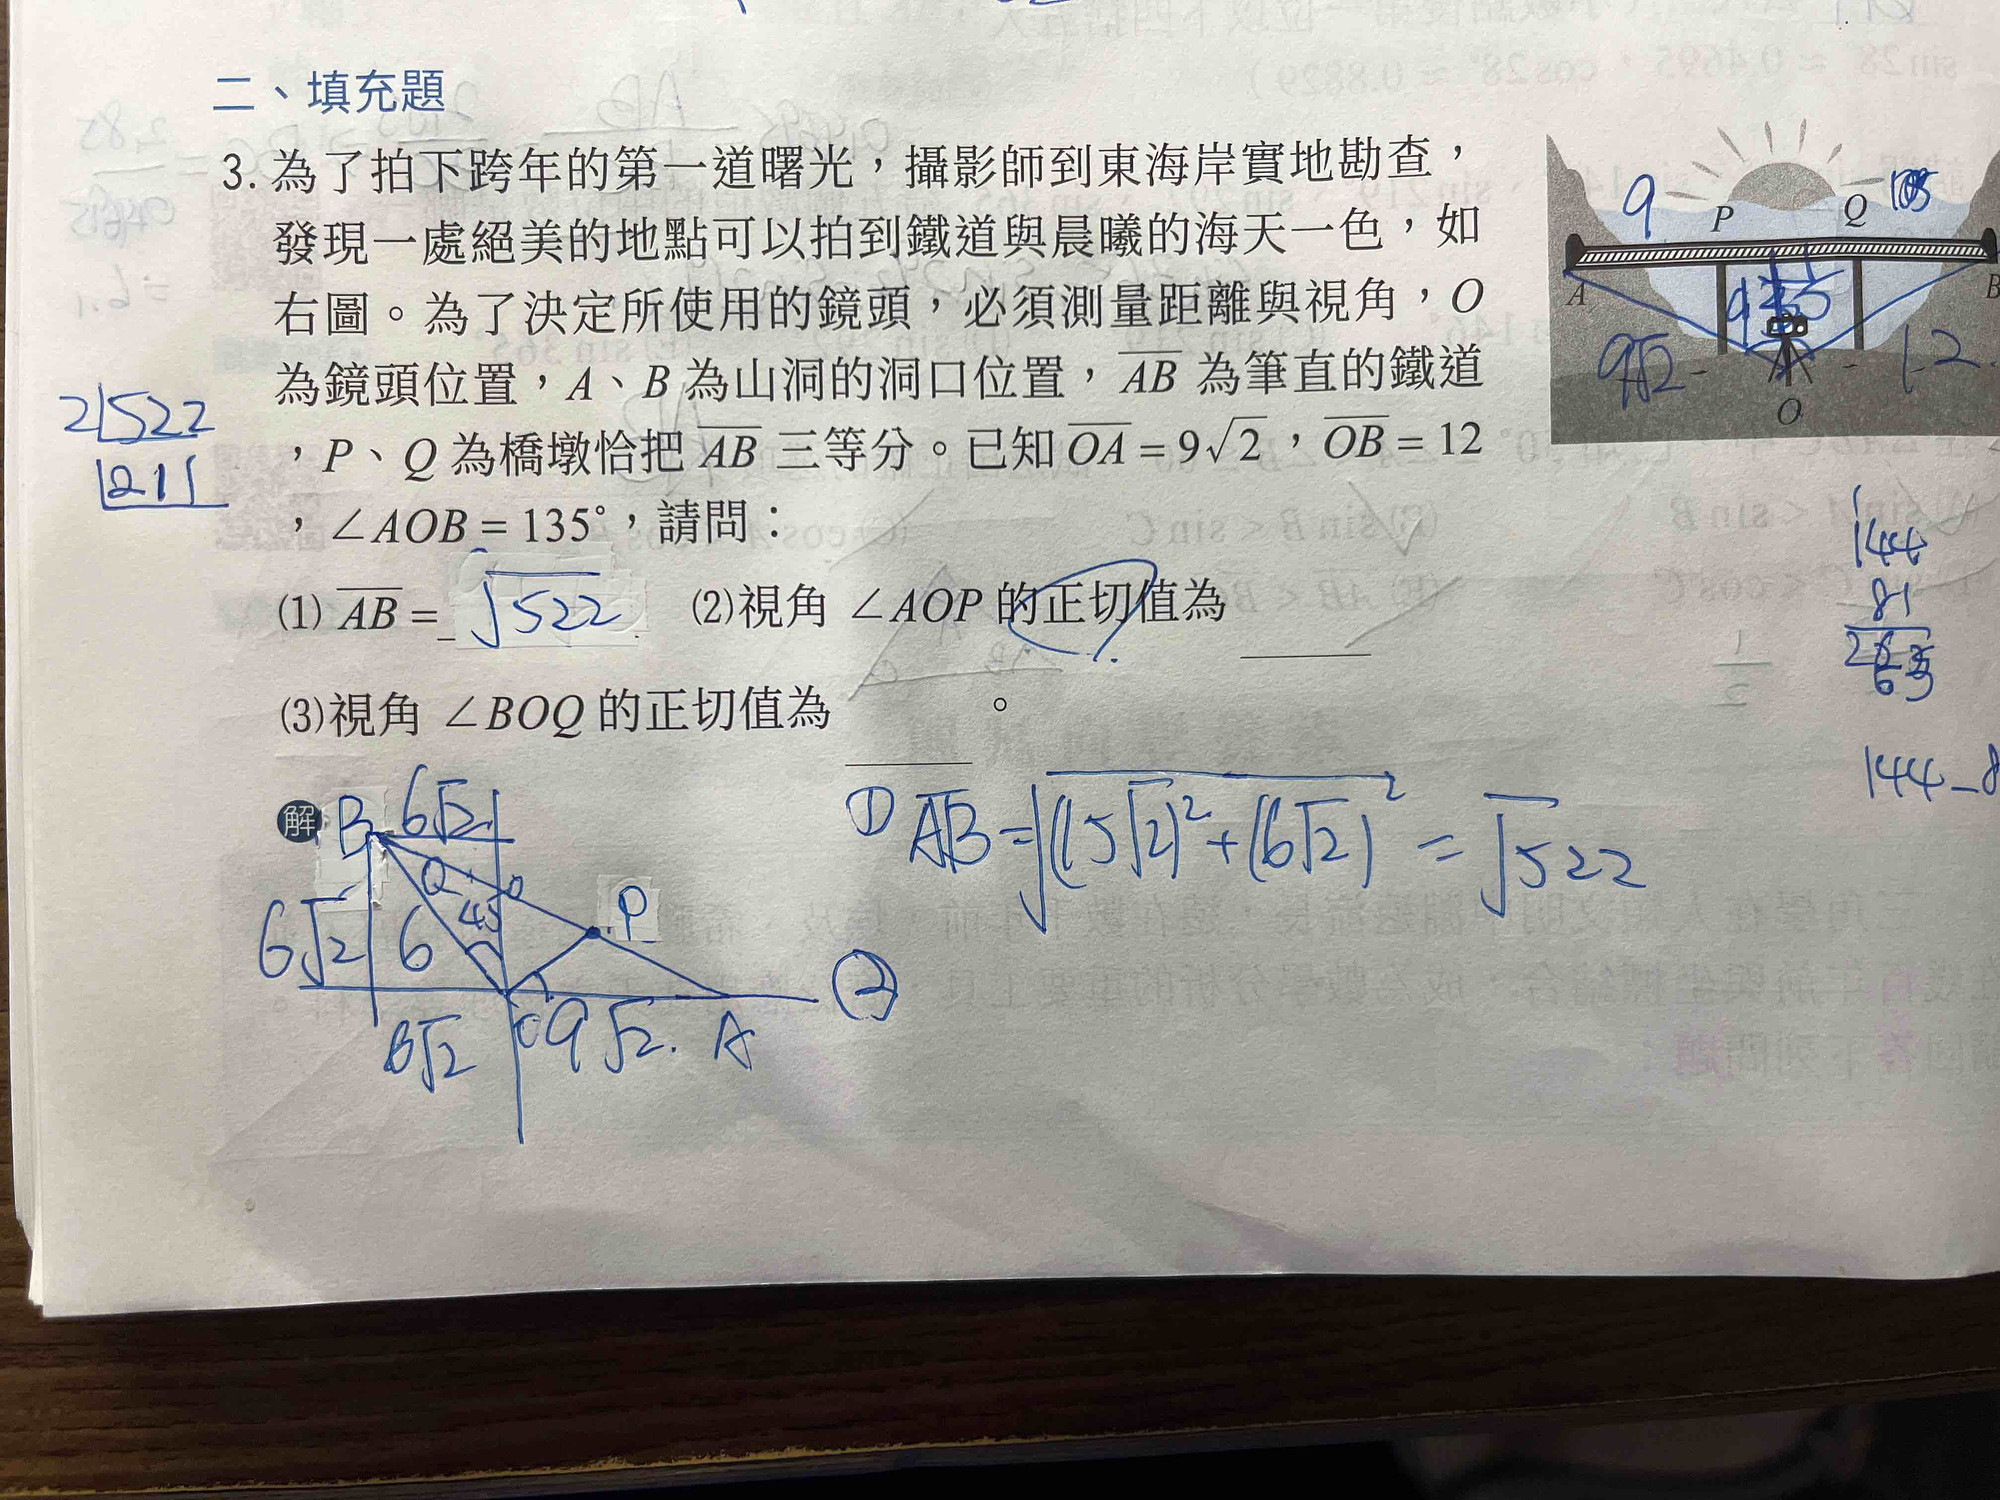 二、填充題
3. 為了拍下跨年的第一道曙光，攝影師到東海岸實地勘查，
發現一處絕美的地點可以拍到鐵道與晨曦的海天一色，如
右圖。為了決定所使用的鏡頭，必須測量距離與視角，O
為鏡頭位置，A、B 為山洞的洞口位置，AB 為筆直的鐵道
，P、Q 為橋墩恰把 AB 三等分。已知 OA = 9√2，OB = 12
，∠AOB = 135°，請問：
(1) AB = √522 (2)視角 ∠AOP 的正切值為
(3)視角 ∠BOQ 的正切值為 。
9 P Q
A B
9√2 12
O
2 522
211
144
81
144-8
解 B 6√2
Q P
6√2 6 45
6√2 O 9√2 A
① AB = √(15√2)²+(6√2)² = √522
②